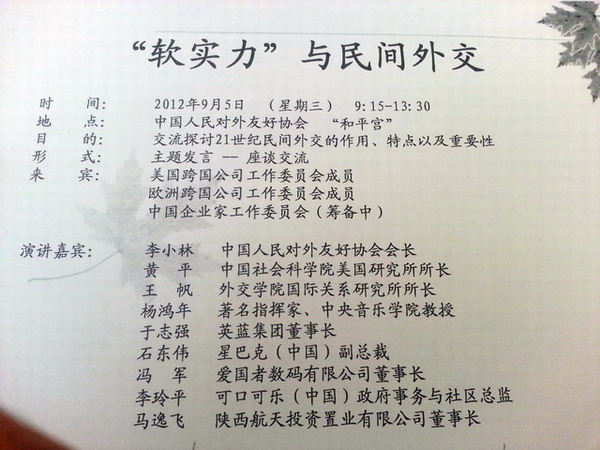 “软实力”与民间外交
时 间： 2012年9月5日 （星期三） 9:15-13:30
地 点： 中国人民对外友好协会 “和平宫”
目 的： 交流探讨21世纪民间外交的作用、特点以及重要性
形 式： 主题发言 -- 座谈交流
来 宾： 美国跨国公司工作委员会成员
欧洲跨国公司工作委员会成员
中国企业家工作委员会（筹备中）
演讲嘉宾： 李小林 中国人民对外友好协会会长
黄 平 中国社会科学院美国研究所所长
王 帆 外交学院国际关系研究所所长
杨鸿年 著名指挥家、中央音乐学院教授
于志强 英蓝集团董事长
石东伟 星巴克（中国）副总裁
冯 军 爱国者数码有限公司董事长
李玲平 可口可乐（中国）政府事务与社区总监
马逸飞 陕西航天投资置业有限公司董事长